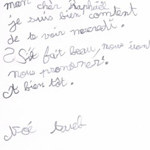 mon cher Raphaël
je suis bien content
de te voir mercredi.
S'il fait beau, nous iron
nous promener.
A bien tôt.
Noé